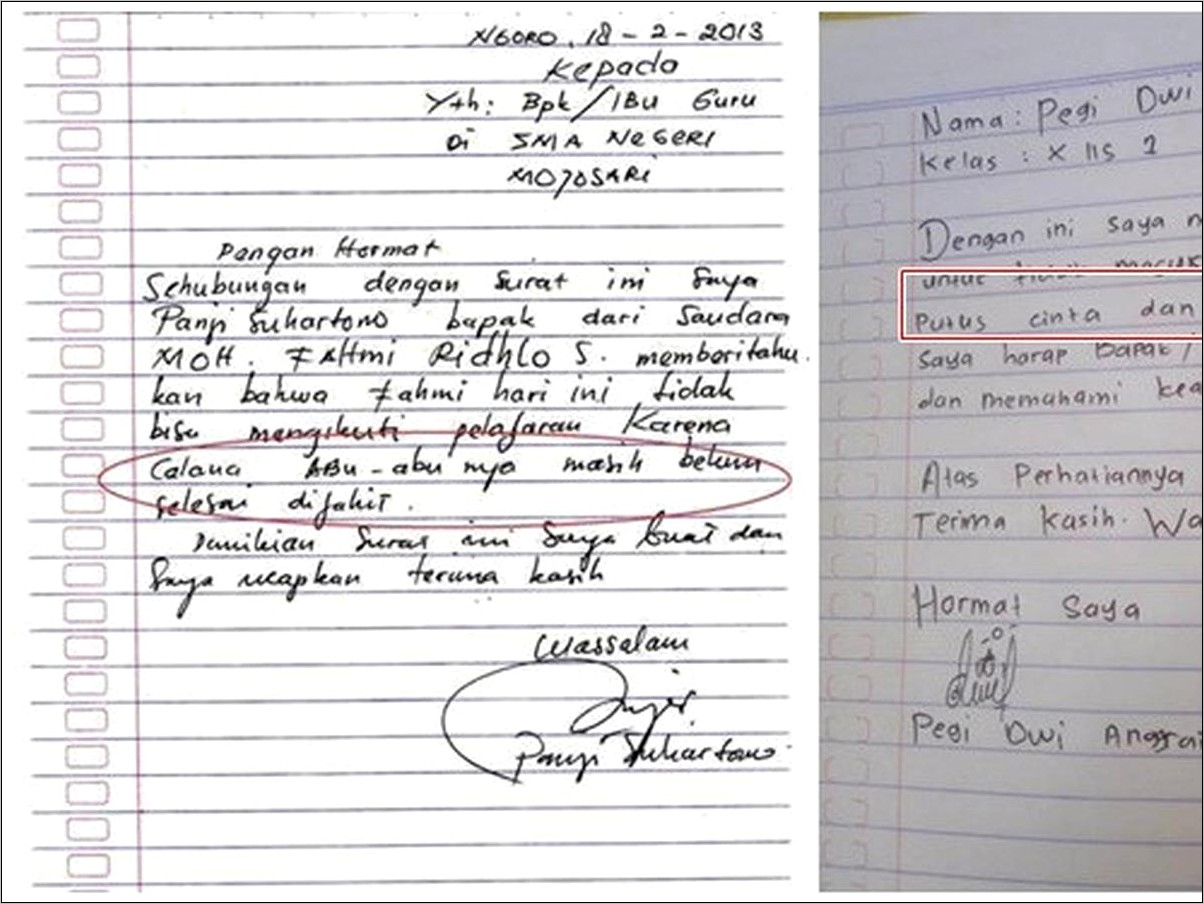 NGORO, 18 - 2 - 2013
Kepada
Yth: Bpk/IBu Guru
Di SMA NEGERI
MOJOSARI
Dengan Hormat
Sehubungan dengan surat ini Saya
Panji Suhartono bapak dari Saudara
MOH. FAHmi Ridhlo S. memberitahu
kan bahwa Fahmi hari ini tidak
bisa mengikuti pelajaran Karena
Celana ABu-abu nya masih belum
selesai dijahit.
Demikian Surat ini Saya buat dan
Saya ucapkan terima kasih
Wassalam
Panji Suhartono
Nama : Pegi Dwi
Kelas : X IIS 2
Dengan ini saya
untuk tidak masuk
Putus cinta dan
Saya harap Bapak /
dan memahami kea
Atas Perhatiannya
Terima kasih. Wa
Hormat Saya
Pegi Dwi Anggrai